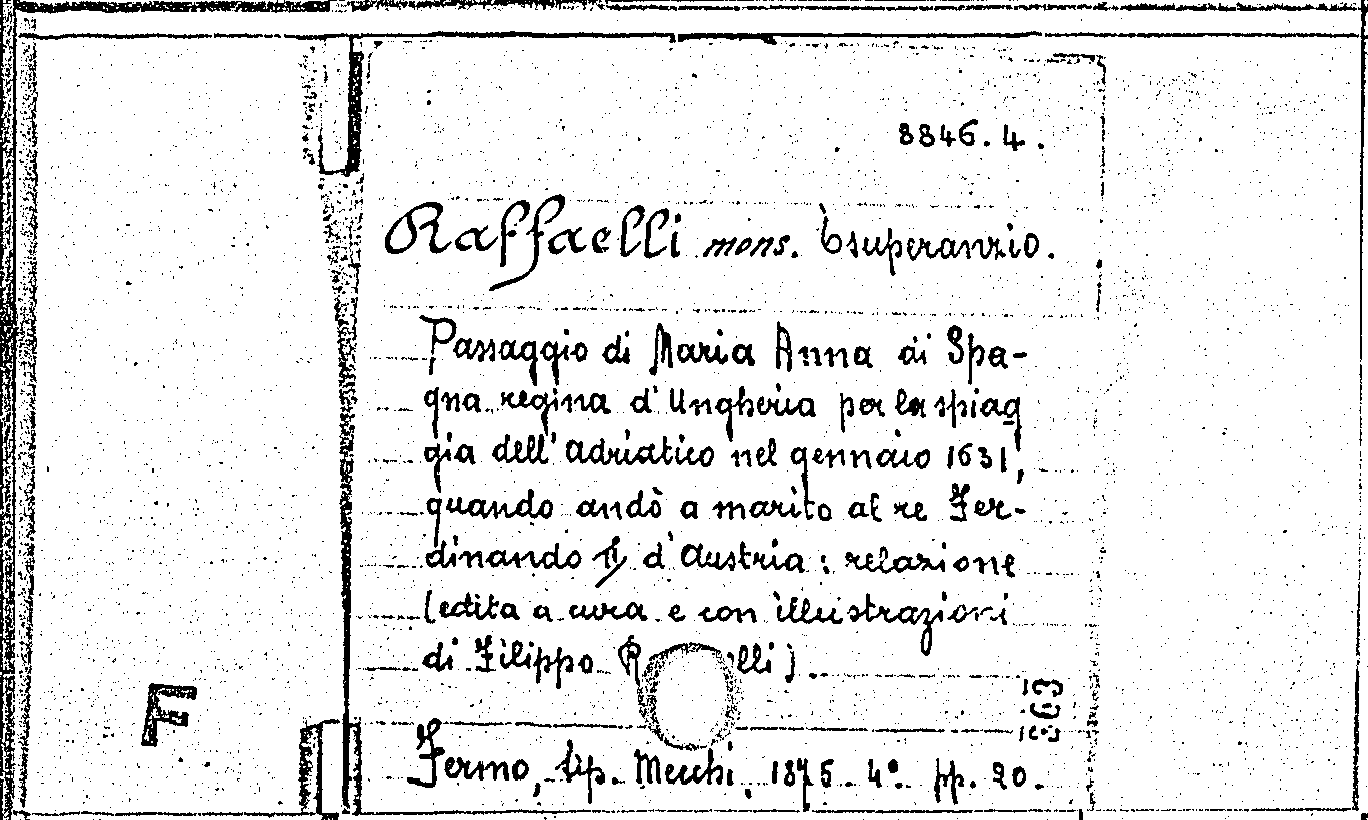 8846.4.
Raffaelli mons. Esuperanzio.
Passaggio di Maria Anna di Spa-
gna regina d'Ungheria per la spiag
gia dell'Adriatico nel gennaio 1631,
quando andò a marito al re Fer-
dinando II d'Austria: relazione
(edita a cura e con illustrazioni
di Filippo R lli).
363
F
Fermo, tip. Mecchi, 1875. 4° pp. 20.